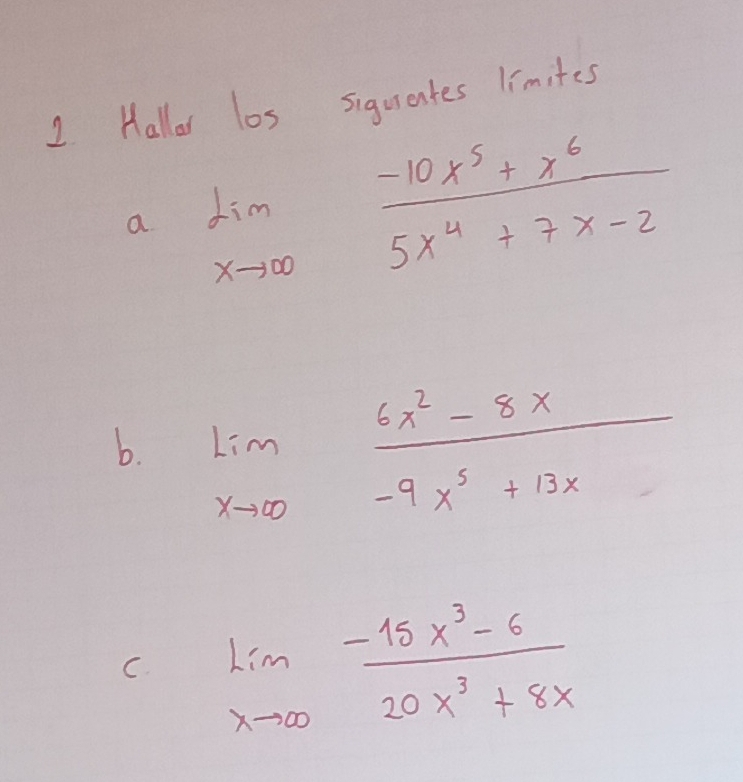 1 Hallar los siguientes límites
a. Lim x→∞ (-10x⁵ + x⁶) / (5x⁴ + 7x - 2)
b. Lim x→∞ (6x² - 8x) / (-9x⁵ + 13x)
c. Lim x→∞ (-15x³ - 6) / (20x³ + 8x)